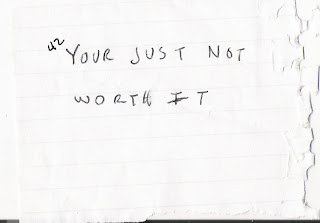 42
YOUR JUST NOT
WORTH IT